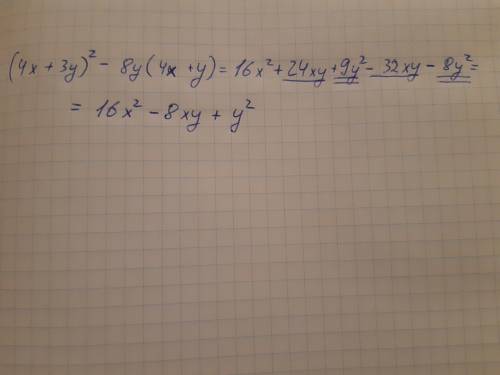 (4x + 3y)² - 8y(4x + y) = 16x² + 24xy + 9y² - 32xy - 8y² =
= 16x² - 8xy + y²